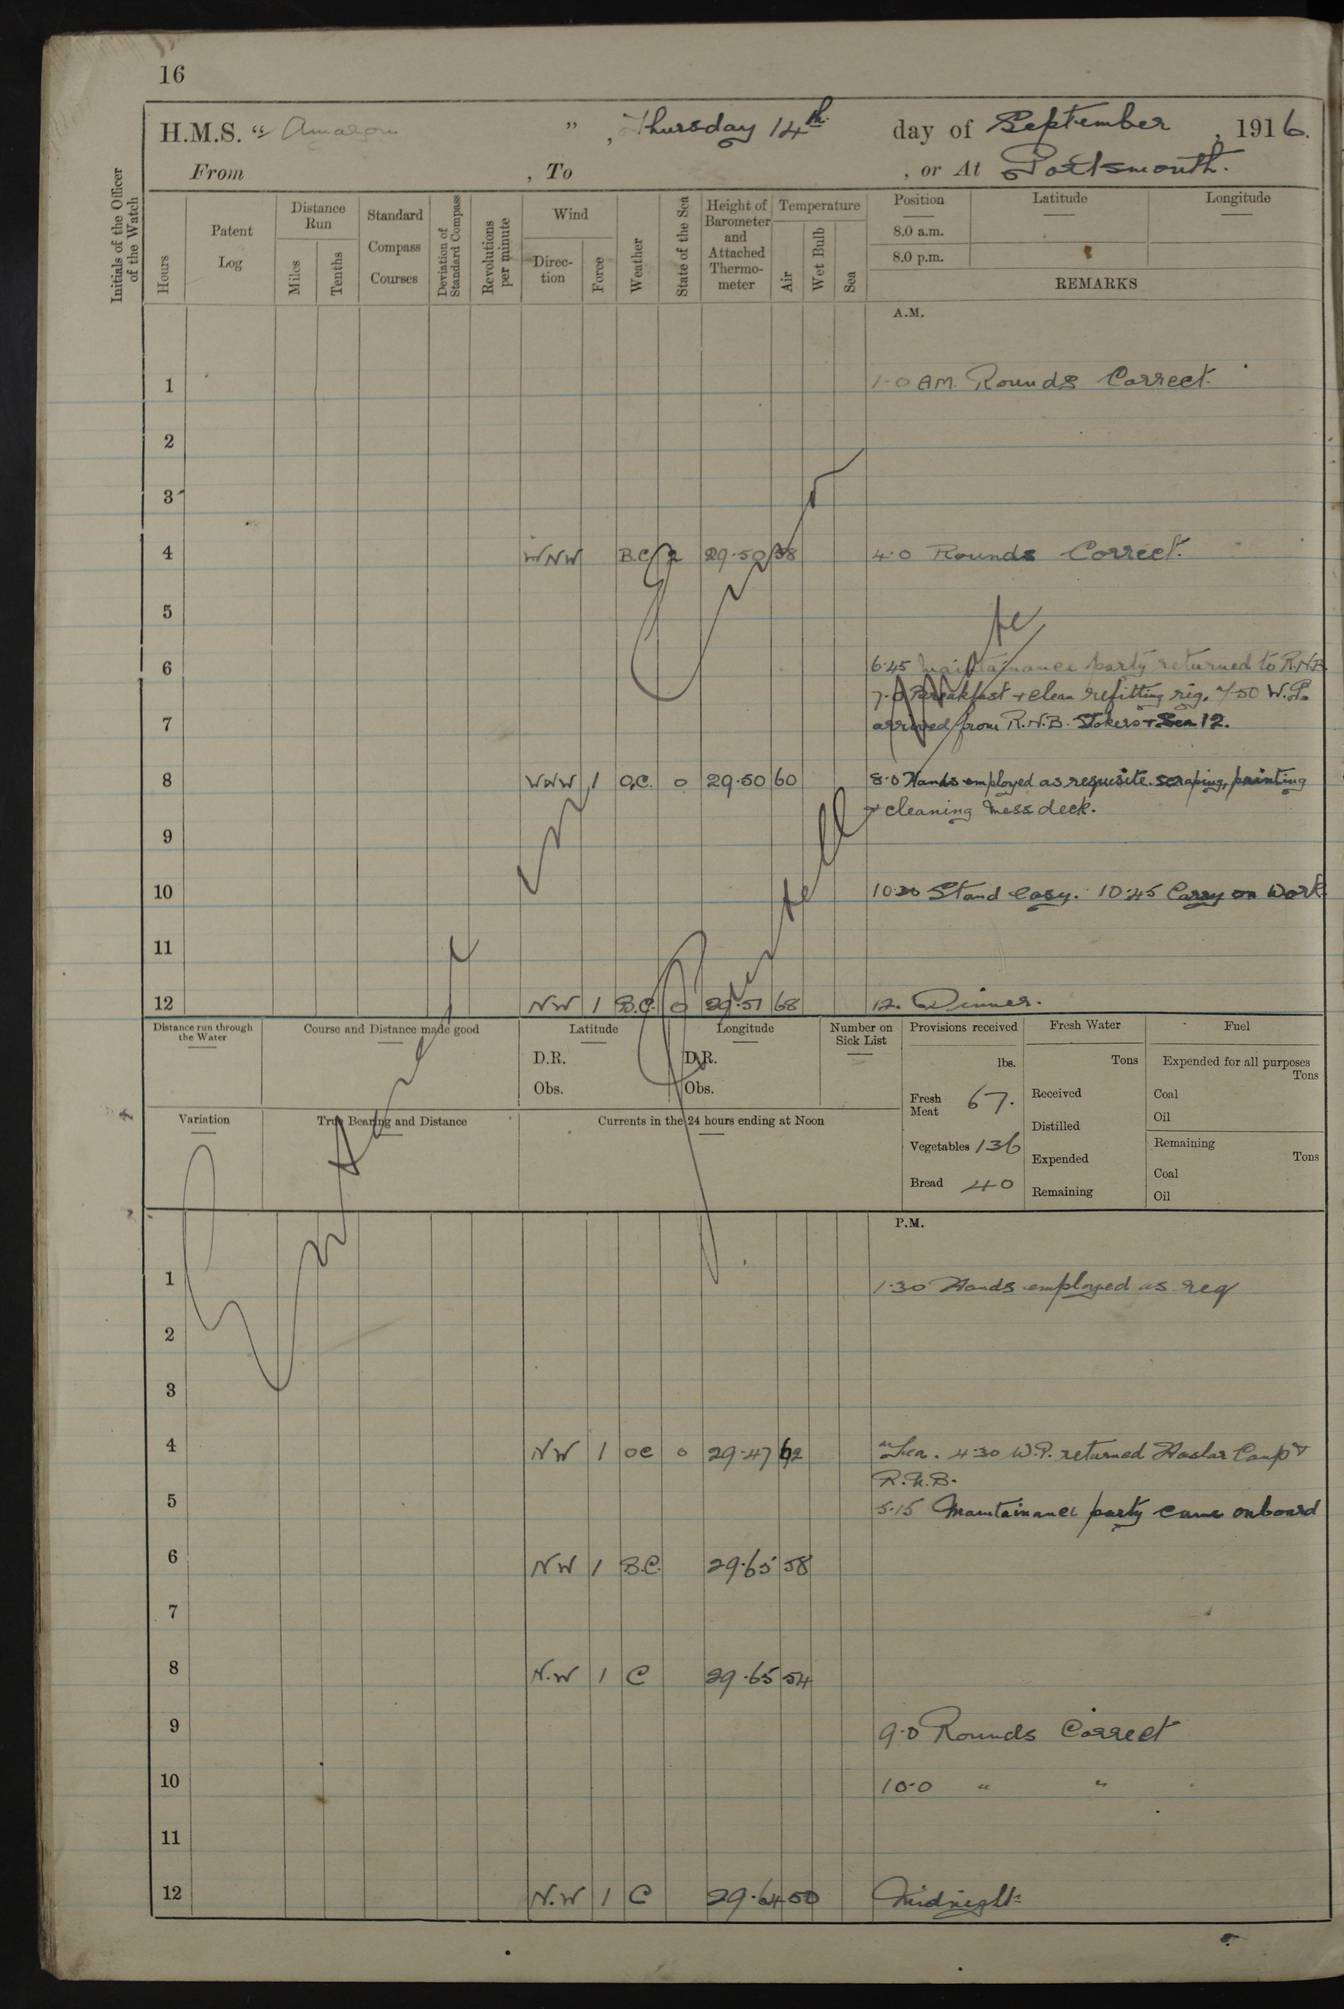 16
H.M.S. " Amazon " , Thursday 14th day of September , 1916.
From , To , or At Portsmouth.
Initials of the Officer of the Watch
Hours
Patent Log
Distance Run
Miles
Tenths
Standard Compass Courses
Deviation of Standard Compass
Revolutions per minute
Wind
Direction
Force
Weather
State of the Sea
Height of Barometer and Attached Thermometer
Temperature
Air
Wet Bulb
Sea
Position
8.0 a.m.
8.0 p.m.
Latitude
Longitude
REMARKS
A.M.
1 1.0 AM. Rounds Correct.
2
3
4 WNW B.C. 2 29.50 58 4.0 Rounds Correct.
5
6 6.45 Maintainance party returned to R.N.B.
7.0 Breakfast + clean refitting rig. 7.50 W.P.
7 arrived from R.N.B. Stokers + Sea 12.
8 WNW 1 O.C. 0 29.50 60 8.0 Hands employed as requisite. scraping, painting
+ cleaning mess deck.
9
10 10.30 Stand easy. 10.45 Carry on Work
11
12 NW 1 B.C. 0 29.51 68 12. Dinner.
Distance run through the Water
Course and Distance made good
Latitude
D.R.
Obs.
Longitude
D.R.
Obs.
Number on Sick List
Provisions received
lbs.
Fresh Meat 67.
Vegetables 136
Bread 40
Fresh Water
Tons
Received
Distilled
Expended
Remaining
Fuel
Expended for all purposes
Tons
Coal
Oil
Remaining
Tons
Coal
Oil
Variation
True Bearing and Distance
Currents in the 24 hours ending at Noon
P.M.
1 1.30 Hands employed as req
2
3
4 NW 1 OC 0 29.47 62 4.30 W.P. returned Haslar Camp &
R.N.B.
5 5.15 Maintainance party came onboard
6 NW 1 B.C. 29.65 58
7
8 N.W 1 C 29.65 54
9 9.0 Rounds Correct
10 10.0 " "
11
12 N.W 1 C 29.64 50 Midnight